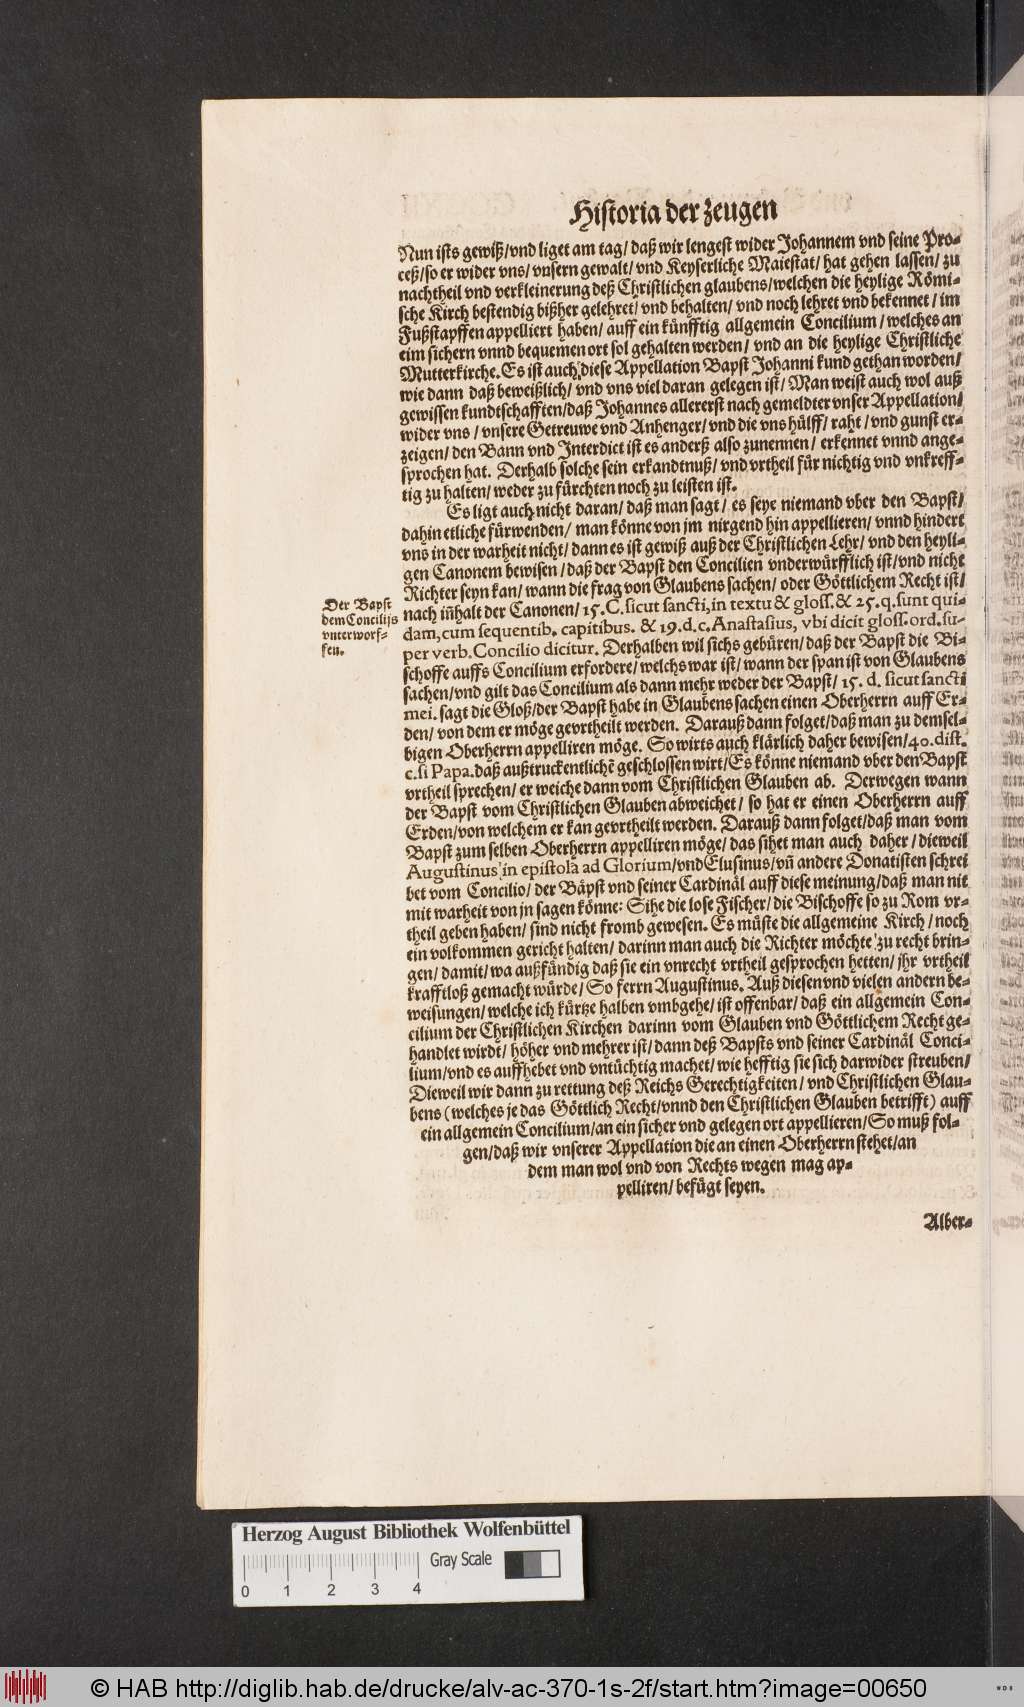 Historia der zeugen
Nun ists gewiß/vnd liget am tag/ daß wir lengest wider Johannem vnd seine Pro-
ceß/so er wider vns/ vnsern gewalt/ vnd Keyserliche Maiestat/ hat gehen lassen/ zu
nachtheil vnd verkleinerung deß Christlichen glaubens/welchen die heylige Römi-
sche Kirch bestendig bißher gelehret/ vnd behalten/ vnd noch lehret vnd bekennet/ im
Fußstapffen appelliert haben/ auff ein künfftig allgemein Concilium/ welches an
eim sichern vnnd bequemen ort sol gehalten werden/ vnd an die heylige Christliche
Mutterkirche. Es ist auch diese Appellation Bapst Johanni kund gethan worden/
wie dann daß beweißlich/ vnd vns viel daran gelegen ist/ Man weist auch wol auß
gewissen kundtschafften/daß Johannes allererst nach gemeldter vnser Appellation/
wider vns / vnsere Getreuwe vnd Anhenger/ vnd die vns hülff/ raht/ vnd gunst er-
zeigen/ den Bann vnd Interdict ist es anderß also zunennen/ erkennet vnnd ange-
sprochen hat. Derhalb solche sein erkandtnuß/ vnd vrtheil für nichtig vnd vnkreff-
tig zu halten/ weder zu fürchten noch zu leisten ist.
Es ligt auch nicht daran/ daß man sagt/ es seye niemand vber den Bapst/
dahin etliche fürwenden/ man könne von jm nirgend hin appellieren/ vnnd hindert
vns in der warheit nicht/ dann es ist gewiß auß der Christlichen Lehr/ vnd den heyli-
gen Canonem bewisen/ daß der Bapst den Concilien vnderwürfflich ist/vnd nicht
Richter seyn kan/ wann die frag von Glaubens sachen/ oder Göttlichem Recht ist/
Der Bapst
dem Concilijs
vnterworf-
fen.
nach iñhalt der Canonen/ 15. C. sicut sancti, in textu & gloss. & 25. q. sunt qui-
dam, cum sequentib. capitibus. & 19. d. c. Anastasius, vbi dicit gloss. ord. su-
per verb. Concilio dicitur. Derhalben wil sichs gebüren/ daß der Bapst die Bi-
schoffe auffs Concilium erfordere/ welchs war ist/ wann der span ist von Glaubens
sachen/vnd gilt das Concilium als dann mehr weder der Bapst/ 15. d. sicut sancti
mei. sagt die Gloß/der Bapst habe in Glaubens sachen einen Oberherrn auff Er-
den/ von dem er möge gevrtheilt werden. Darauß dann folget/daß man zu demsel-
bigen Oberherrn appelliren möge. So wirts auch klärlich daher bewisen/ 40. dist.
c. si Papa. daß außtruckentlichẽ geschlossen wirt/ Es könne niemand vber den Bapst
vrtheil sprechen/ er weiche dann vom Christlichen Glauben ab. Derwegen wann
der Bapst vom Christlichen Glauben abweichet/ so hat er einen Oberherrn auff
Erden/von welchem er kan gevrtheilt werden. Darauß dann folget/daß man vom
Bapst zum selben Oberherrn appelliren möge/ das sihet man auch daher/ dieweil
Augustinus in epistola ad Glorium/vnd Elusinus/ vñ andere Donatisten schrei
bet vom Concilio/ der Bäpst vnd seiner Cardinäl auff diese meinung/daß man nit
mit warheit von jn sagen könne: Sihe die lose Fischer/ die Bischoffe so zu Rom vr-
theil geben haben/ sind nicht fromb gewesen. Es müste die allgemeine Kirch/ noch
ein volkommen gericht halten/ darinn man auch die Richter möchte zu recht brin-
gen/ damit/ wa außfündig daß sie ein vnrecht vrtheil gesprochen hetten/ jhr vrtheil
krafftloß gemacht würde/ So ferrn Augustinus. Auß diesen vnd vielen andern be-
weisungen/ welche ich kürtze halben vmbgehe/ ist offenbar/ daß ein allgemein Con-
cilium der Christlichen Kirchen darinn vom Glauben vnd Göttlichem Recht ge-
handlet wirdt/ höher vnd mehrer ist/ dann deß Bapsts vnd seiner Cardinäl Conci-
lium/vnd es auffhebet vnd vntüchtig machet/ wie hefftig sie sich darwider streuben/
Dieweil wir dann zu rettung deß Reichs Gerechtigkeiten/ vnd Christlichen Glau-
bens (welches je das Göttlich Recht/vnnd den Christlichen Glauben betrifft) auff
ein allgemein Concilium/an ein sicher vnd gelegen ort appellieren/ So muß fol-
gen/daß wir vnserer Appellation die an einen Oberherrn stehet/an
dem man wol vnd von Rechts wegen mag ap-
pelliren/ befügt seyen.
Alber-
Herzog August Bibliothek Wolfenbüttel
Gray Scale
0 1 2 3 4
© HAB http://diglib.hab.de/drucke/alv-ac-370-1s-2f/start.htm?image=00650